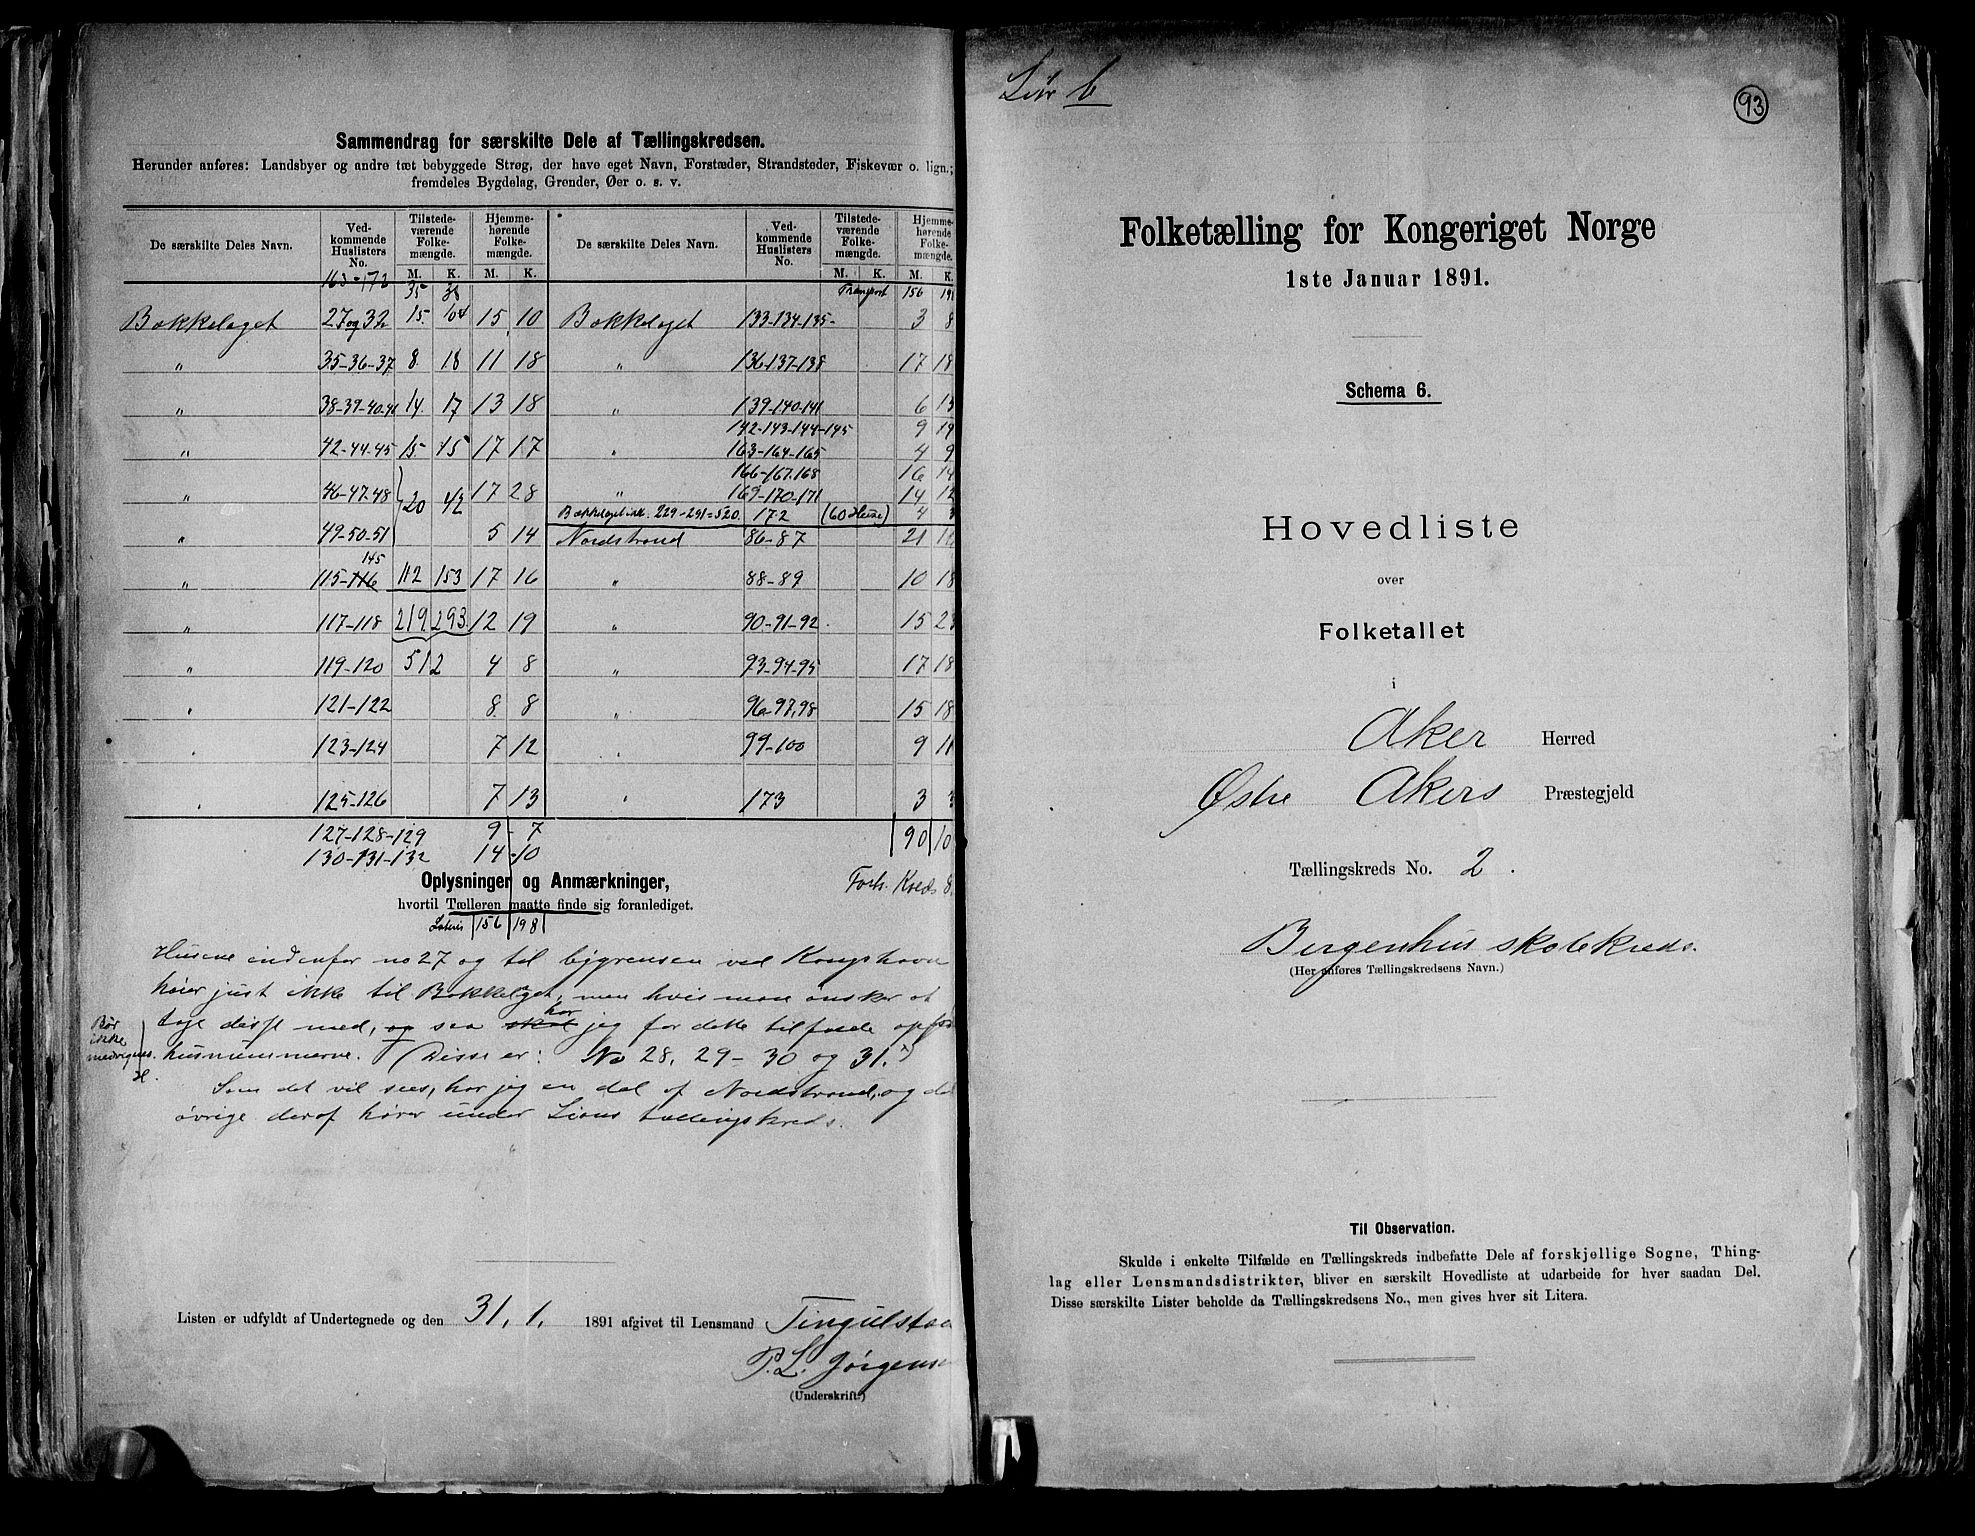 Sammendrag for særskilte Dele af Tællingskredsen.
Herunder anføres: Landsbyer og andre tæt bebyggede Strøg, der have eget Navn, Forstæder, Strandsteder, Fiskevær o. lign.;
fremdeles Bygdelag, Grender, Øer o. s. v.
De særskilte Deles Navn. Ved-kommende Huslisters No. Tilstede-værende Folke-mængde. Hjemme-hørende Folke-mængde. De særskilte Deles Navn. Ved-kommende Huslisters No. Tilstede-værende Folke-mængde. Hjemme-hørende Folke-mængde.
M. K. M. K. M. K. M. K.
163-172 35 38 Transport 156 198
Bækkelaget 27 og 32 15 15 10 Bækkelaget 133-134-135- 3 8
" 35-36-37 8 18 11 18 " 136-137-138 17 18
" 38-39-40-41 14 17 13 18 " 139-140-141 6 15
142-143-144-145 9 19
" 42-44-45 15 15 17 17 " 163-164-165 4 9
166-167.168 16 14
" 46-47-48 20 42 17 28 " 169-170-171 14 12
Bækkelaget ialt. 229-291=520. 172 (60 Huse) 4 3
" 49-50-51 5 14 Nordstrand 86-87 21
145
" 115-116 112 153 17 16 " 88-89 10 18
" 117-118 219 293 12 19 " 90-91-92. 15 23
" 119-120 512 4 8 " 93-94-95 17 18
" 121-122 8 8 " 96-97,98 15 18
" 123-124 7 12 " 99-100 9 11
" 125-126 7 13 " 173 3 3
127-128-129 9-7 90 10
130-131-132 14-10
Oplysninger og Anmærkninger,
Forts. Kreds 8.
hvortil Tælleren maatte finde sig foranlediget.
Lateris 156 198
Husene indenfor no 27 og til bygrensen ved Kongshavn
hører just ikke til Bækkelaget, men hvis man ønsker at
tage disse med, og saa skal har jeg for dette tilfælde opført
husnummerne. (Disse er: No 28, 29-30 og 31.)
Bør
ikke
medregnes.
H.
Som det vil sees, har jeg en del af Nordstrand, og det
øvrige deraf hører under Lians tællingskreds.
Listen er udfyldt af Undertegnede og den 31. 1. 1891 afgivet til Lensmand Tingulstad
P. L. Jørgensen
(Underskrift.)
Litr b
93
Folketælling for Kongeriget Norge
1ste Januar 1891.
Schema 6.
Hovedliste
over
Folketallet
i
Aker Herred
Østre Akers Præstegjeld
Tællingskreds No. 2.
Birgenhus skolekreds.
(Her anføres Tællingskredsens Navn.)
Til Observation.
Skulde i enkelte Tilfælde en Tællingskreds indbefatte Dele af forskjellige Sogne, Thing-
lag eller Lensmandsdistrikter, bliver en særskilt Hovedliste at udarbeide for hver saadan Del.
Disse særskilte Lister beholde da Tællingskredsens No., men gives hver sit Litera.